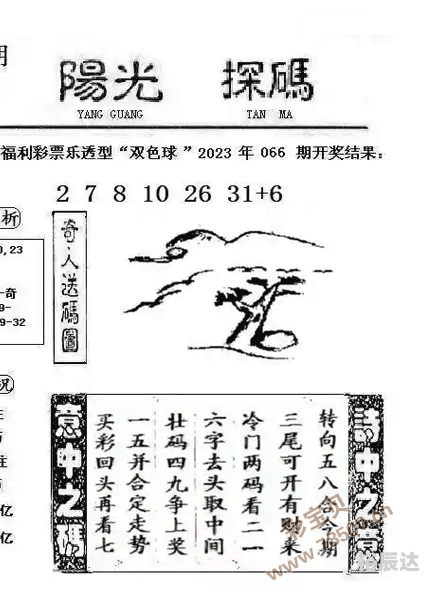 期
陽光 探碼
YANG GUANG TAN MA
福利彩票乐透型“双色球”2023 年 066 期开奖结果：
2 7 8 10 26 31+6
析
0,23
-奇
9-
9-32
况
注
亿
亿
奇人送碼圖
詩中之意
转向五八合今期
三尾可开有财来
冷门两码看二一
六字去头取中间
壮码四九争上奖
一五并合定走势
买彩回头再看七
意中之碼
彩宝贝
www.78500.cn